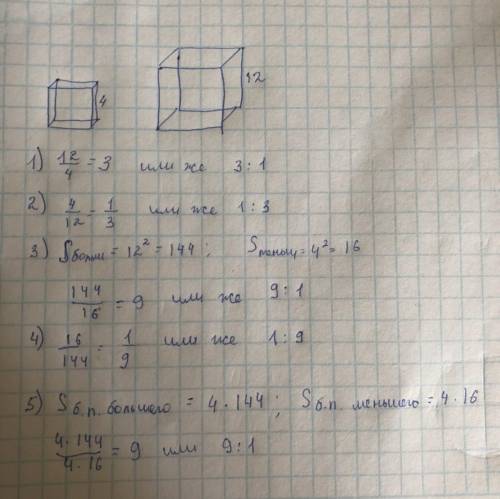 4
12
1) 12/4 = 3 или же 3:1
2) 4/12 = 1/3 или же 1:3
3) Sбольш = 12² = 144; Sменьш = 4² = 16
144/16 = 9 или же 9:1
4) 16/144 = 1/9 или же 1:9
5) S б.п. большего = 4·144; S б.п. меньшего = 4·16
4·144/4·16 = 9 или 9:1